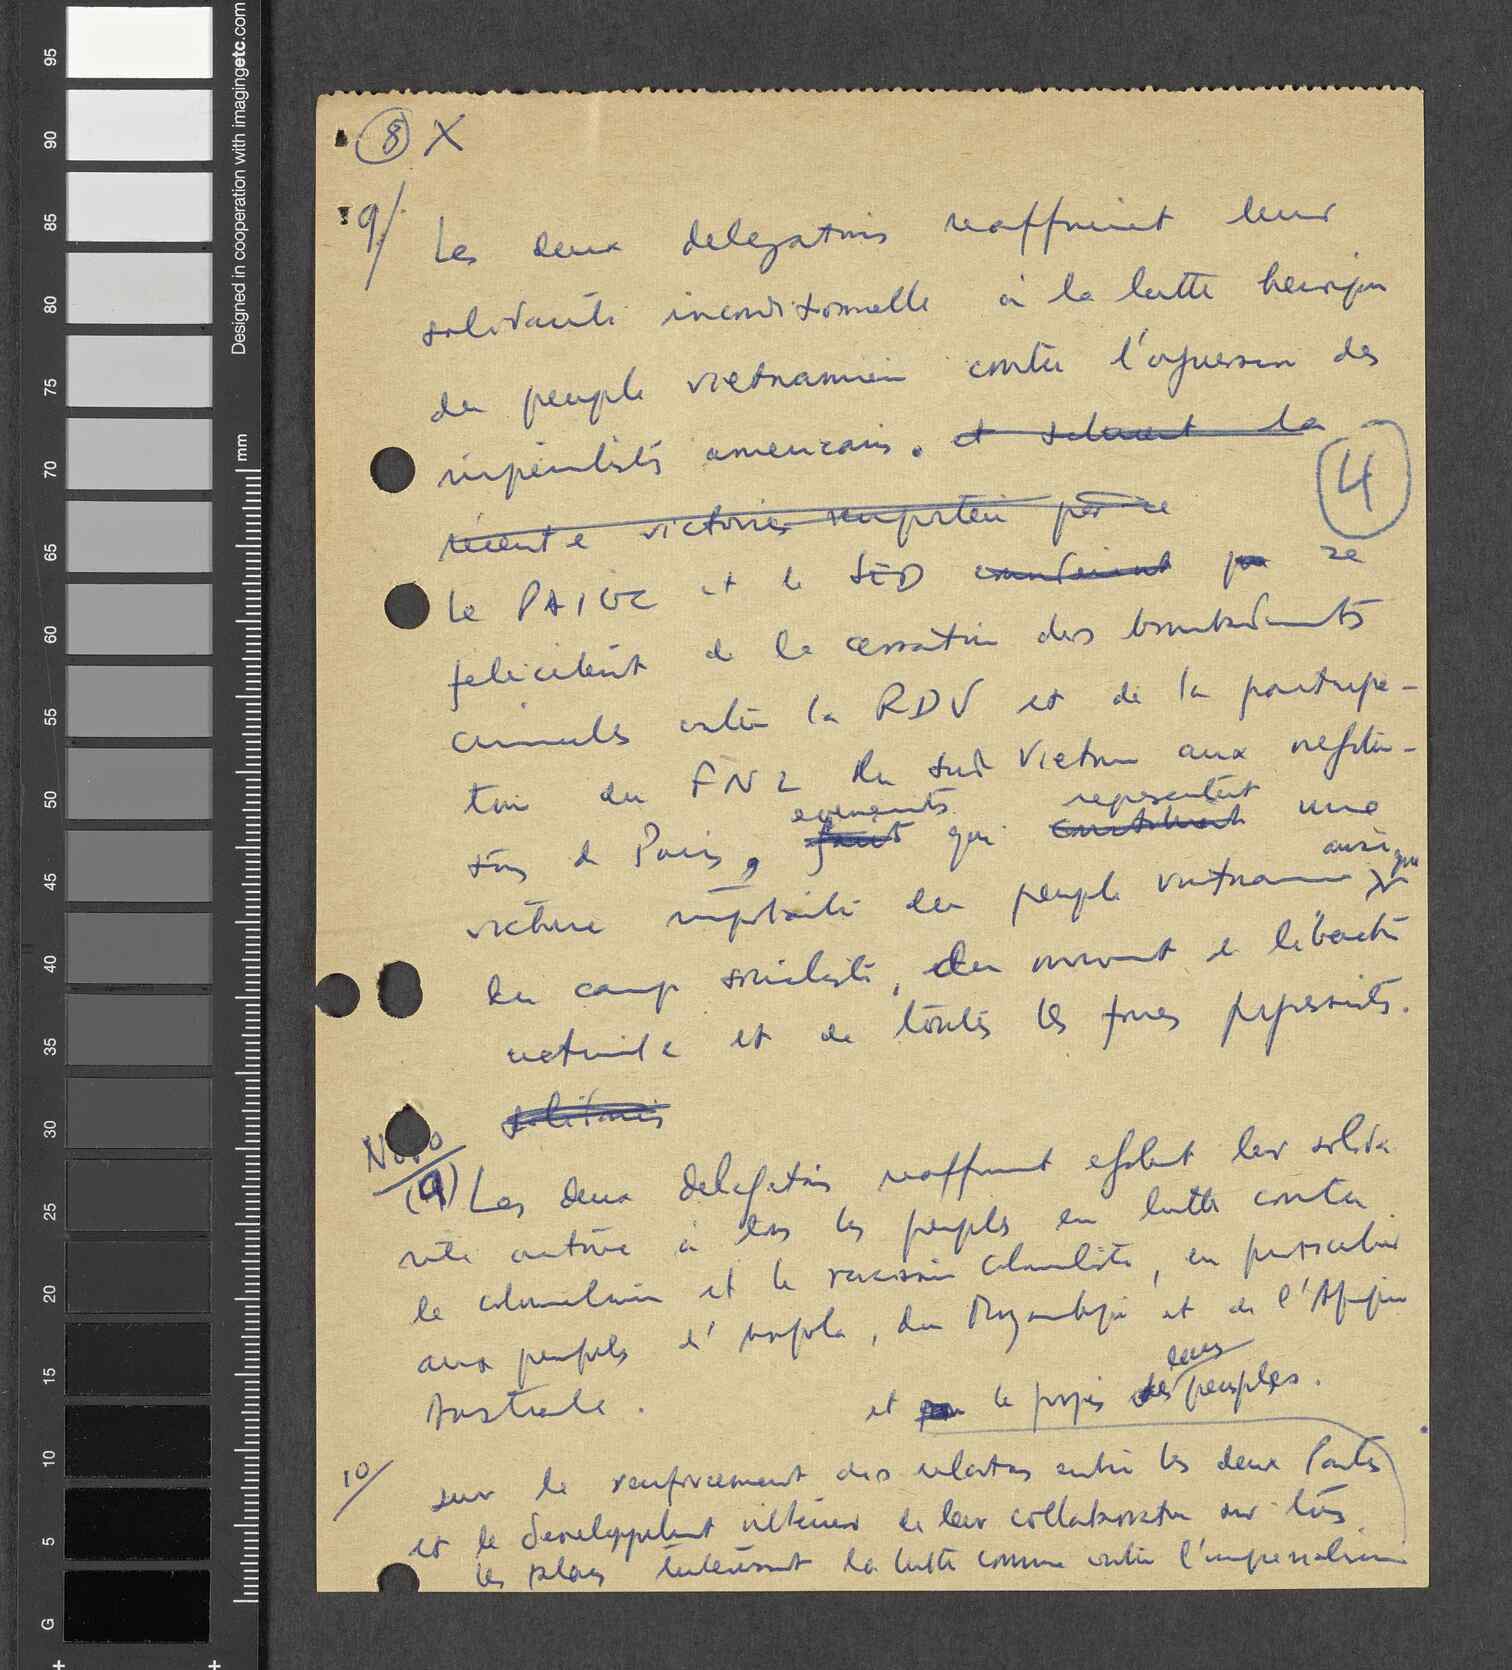 95
90
85
80
75
70
65
60
55
50
45
40
35
30
25
20
15
10
5
G
Designed in cooperation with imagingetc.com
mm
8 X
9/ Les deux delegations reaffirment leur
solidarité inconditionnelle à la lutte heroique
du peuple vietnamien contre l'agression des
imperialistes americains. et saluent la
récente victoire remportée par ce
4
Le PAIGC et le SED se
felicitent de la cessation des bombardements
criminels contre la RDV et de la participa-
tion du FNL du Sud Vietnam aux negotia-
evenements representent
tions de Paris, font qui constituent une
ainsi que
victoire importante du peuple vietnamien
du camp socialiste, du mouvement de liberation
nationale et de toutes les forces progressistes.
solidaires
Novo
(9) Les deux delegations reaffirment egalement leur solida
rité active à tous les peuples en lutte contre
le colonialisme et le racisme colonialiste, en particulier
aux peuples d'Angola, du Mozambique et de l'Afrique
leurs
Australe.
et le progrès des peuples.
10/ sur le renforcement des relations entre les deux Partis
et le developpement ultérieur de leur collaboration sur tous
les plans intéressant la lutte commune contre l'imperialisme